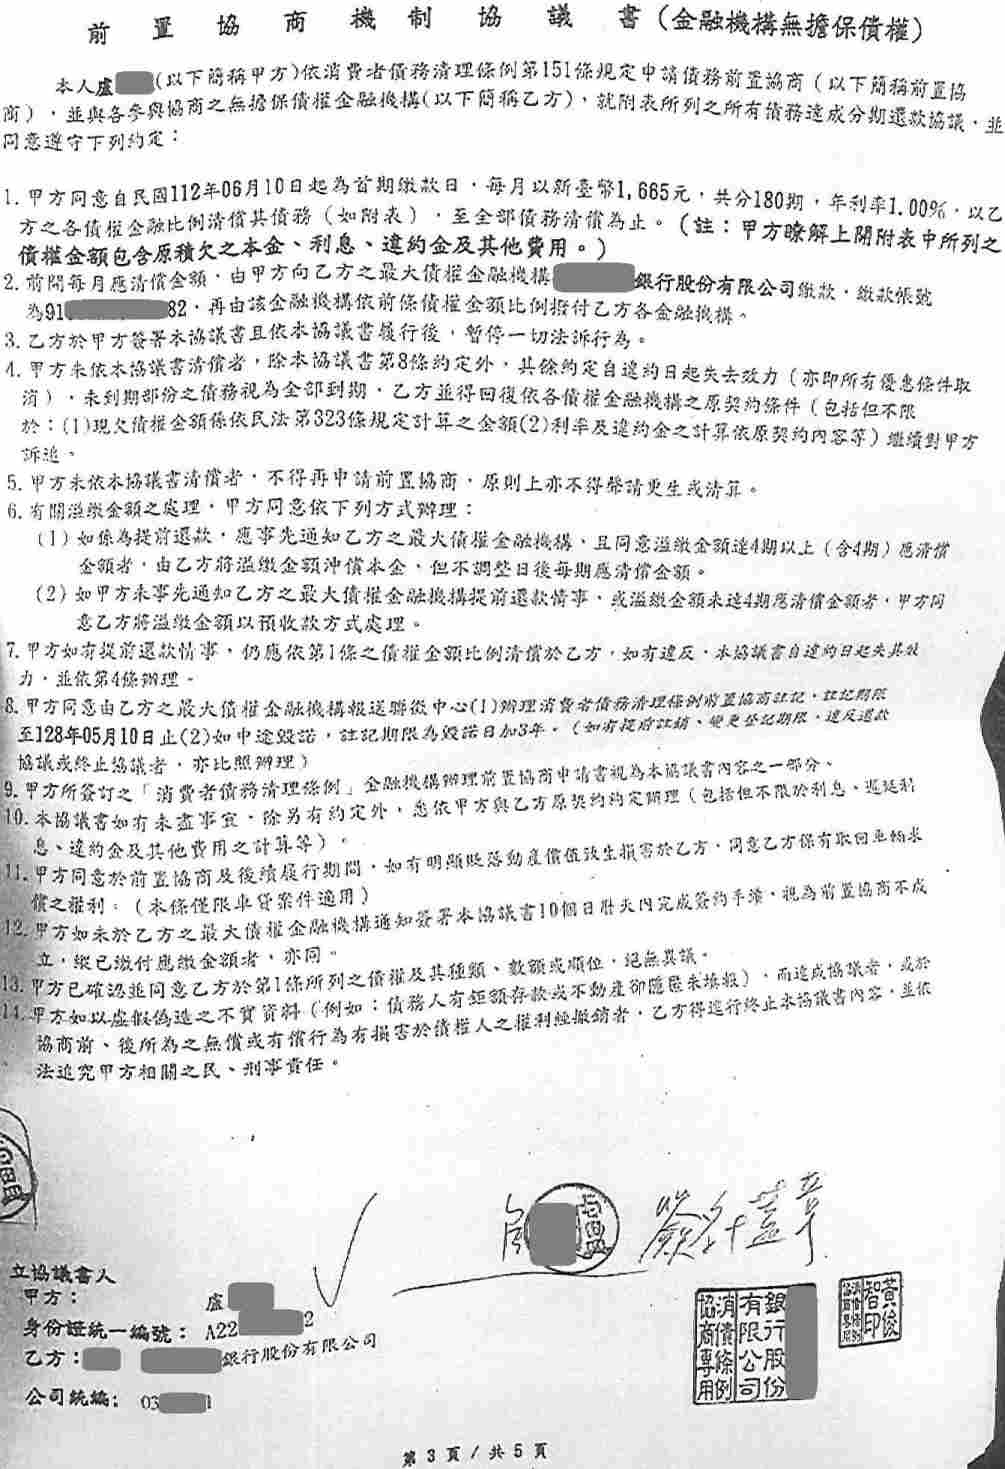 前置協商機制協議書(金融機構無擔保債權)
本人盧(以下簡稱甲方)依消費者債務清理條例第151條規定申請債務前置協商(以下簡稱前置協
商),並與各參與協商之無擔保債權金融機構(以下簡稱乙方),就附表所列之所有債務達成分期還款協議,並
同意遵守下列約定:
1.甲方同意自民國112年06月10日起為首期繳款日,每月以新臺幣1,665元,共分180期,年利率1.00%,以乙
方之各債權金融比例清償其債務(如附表),至全部債務清償為止。(註:甲方瞭解上開附表中所列之
債權金額包含原積欠之本金、利息、違約金及其他費用。)
2.前開每月應清償金額,由甲方向乙方之最大債權金融機構 銀行股份有限公司繳款,繳款帳號
為91 82,再由該金融機構依前條債權金額比例撥付乙方各金融機構。
3.乙方於甲方簽署本協議書且依本協議書履行後,暫停一切法訴行為。
4.甲方未依本協議書清償者,除本協議書第8條約定外,其餘約定自違約日起失去效力(亦即所有優惠條件取
消),未到期部份之債務視為全部到期,乙方並得回復依各債權金融機構之原契約條件(包括但不限
於:(1)現欠債權金額係依民法第323條規定計算之金額(2)利率及違約金之計算依原契約內容等)繼續對甲方
訴追。
5.甲方未依本協議書清償者,不得再申請前置協商,原則上亦不得聲請更生或清算。
6.有關溢繳金額之處理,甲方同意依下列方式辦理:
(1)如係為提前還款,應事先通知乙方之最大債權金融機構,且同意溢繳金額達4期以上(含4期)應清償
金額者,由乙方將溢繳金額沖償本金,但不調整日後每期應清償金額。
(2)如甲方未事先通知乙方之最大債權金融機構提前還款情事,或溢繳金額未達4期應清償金額者,甲方同
意乙方將溢繳金額以預收款方式處理。
7.甲方如有提前還款情事,仍應依第1條之債權金額比例清償於乙方,如有違反,本協議書自違約日起失其效
力,並依第4條辦理。
8.甲方同意由乙方之最大債權金融機構報送聯徵中心(1)辦理消費者債務清理條例前置協商註記,註記期限
至128年05月10日止(2)如中途毀諾,註記期限為毀諾日加3年。(如有提前註銷、變更登記期限,違反還款
協議或終止協議者,亦比照辦理)
9.甲方所簽訂之「消費者債務清理條例」金融機構辦理前置協商申請書視為本協議書內容之一部分。
10.本協議書如有未盡事宜,除另有約定外,悉依甲方與乙方原契約約定辦理(包括但不限於利息、遲延利
息、違約金及其他費用之計算等)。
11.甲方同意於前置協商及後續履行期間,如有明顯貶落動產價值致生損害於乙方,同意乙方保有取回並暢求
償之權利。(本條僅限車貸案件適用)
12.甲方如未於乙方之最大債權金融機構通知簽署本協議書10個日曆天內完成簽約手續,視為前置協商不成
立,縱已繳付應繳金額者,亦同。
13.甲方已確認並同意乙方於第1條所列之債權及其種類、數額或順位,絕無異議。
14.甲方如以虛假偽造之不實資料(例如:債務人有鉅額存款或不動產卻隱匿未填報),而達成協議者,或於
協商前、後所為之無償或有償行為有損害於債權人之權利經撤銷者,乙方得逕行終止本協議書內容,並依
法追究甲方相關之民、刑事責任。
簽名+蓋章
立協議書人
甲方: 盧
身份證統一編號: A22 2
乙方: 銀行股份有限公司
公司統編: 03 1
銀行股份
有限公司
消債條例
協商專用
黃俊
智印
第 3 頁 / 共 5 頁